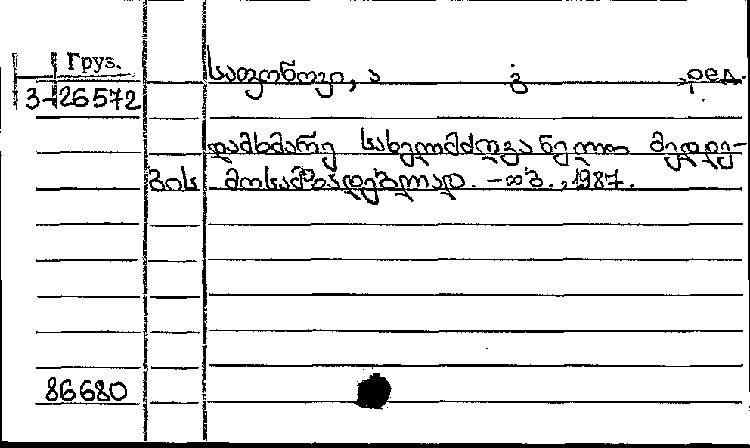 Груз.
საფონოვი, ა გ ред.
3-26572
დამხმარე სახელმძღვანელო მედდე-
ბის მოსამზადებლად. - თბ., 1987.
86680